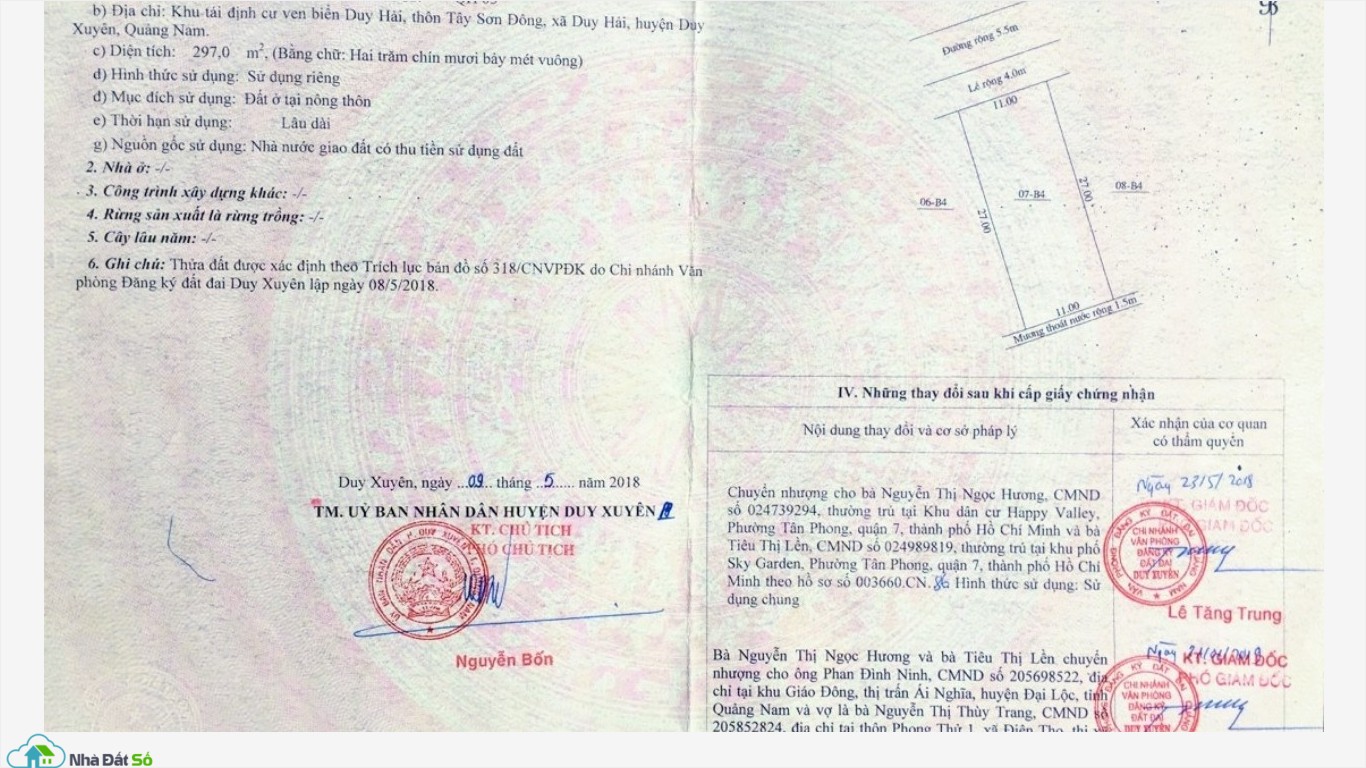 b) Địa chỉ: Khu tái định cư ven biển Duy Hải, thôn Tây Sơn Đông, xã Duy Hải, huyện Duy
Xuyên, Quảng Nam.
c) Diện tích: 297,0 m², (Bằng chữ: Hai trăm chín mươi bảy mét vuông)
d) Hình thức sử dụng: Sử dụng riêng
đ) Mục đích sử dụng: Đất ở tại nông thôn
e) Thời hạn sử dụng: Lâu dài
g) Nguồn gốc sử dụng: Nhà nước giao đất có thu tiền sử dụng đất
2. Nhà ở: -/-
3. Công trình xây dựng khác: -/-
4. Rừng sản xuất là rừng trồng: -/-
5. Cây lâu năm: -/-
6. Ghi chú: Thửa đất được xác định theo Trích lục bản đồ số 318/CNVPĐK do Chi nhánh Văn
phòng Đăng ký đất đai Duy Xuyên lập ngày 08/5/2018.
Duy Xuyên, ngày ...09.. tháng ..5...... năm 2018
TM. UỶ BAN NHÂN DÂN HUYỆN DUY XUYÊN
KT. CHỦ TỊCH
PHÓ CHỦ TỊCH
Nguyễn Bốn
Đường rộng 5.5m
Lề rộng 4.0m
11.00
06-B4
27.00
07-B4
27.00
08-B4
11.00
Mương thoát nước rộng 1.5m
IV. Những thay đổi sau khi cấp giấy chứng nhận
Nội dung thay đổi và cơ sở pháp lý
Xác nhận của cơ quan
có thẩm quyền
Chuyển nhượng cho bà Nguyễn Thị Ngọc Hương, CMND
số 024739294, thường trú tại Khu dân cư Happy Valley,
Phường Tân Phong, quận 7, thành phố Hồ Chí Minh và bà
Tiêu Thị Lền, CMND số 024989819, thường trú tại khu phố
Sky Garden, Phường Tân Phong, quận 7, thành phố Hồ Chí
Minh theo hồ sơ số 003660.CN. Hình thức sử dụng: Sử
dụng chung
Ngày 23/5/2018
KT. GIÁM ĐỐC
PHÓ GIÁM ĐỐC
CHI NHÁNH
VĂN PHÒNG
ĐĂNG KÝ
ĐẤT ĐAI
DUY XUYÊN
Lê Tăng Trung
Bà Nguyễn Thị Ngọc Hương và bà Tiêu Thị Lền chuyển
nhượng cho ông Phan Đình Ninh, CMND số 205698522, địa
chỉ tại khu Giáo Đông, thị trấn Ái Nghĩa, huyện Đại Lộc, tỉnh
Quảng Nam và vợ là bà Nguyễn Thị Thùy Trang, CMND số
205852824, địa chỉ tại thôn Phong Thử 1, xã Điện Thọ, thị xã
Ngày
KT. GIÁM ĐỐC
PHÓ GIÁM ĐỐC
CHI NHÁNH
VĂN PHÒNG
ĐĂNG KÝ
ĐẤT ĐAI
DUY XUYÊN
Nhà Đất Số